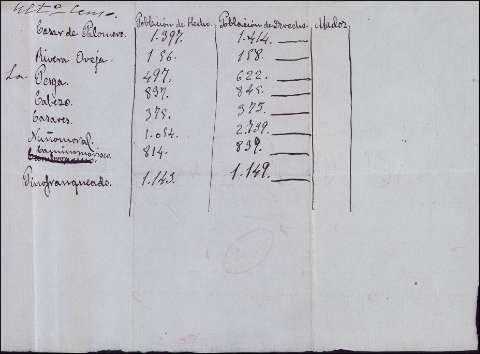 Ult.º Censo.
Poblacion de Hecho. Poblacion de Derecho. Madoz
Casar de Palomero. 1.397. 1.414.
Rivera Oveja. 156. 158.
La Pesga. 497. 622.
Cabezo. 837. 845.
Casares. 375. 375
Nuñomoral. 1.054. 2.739.
Caminomorisco. 814. 839.
Pinofranqueado. 1.143. 1.149.